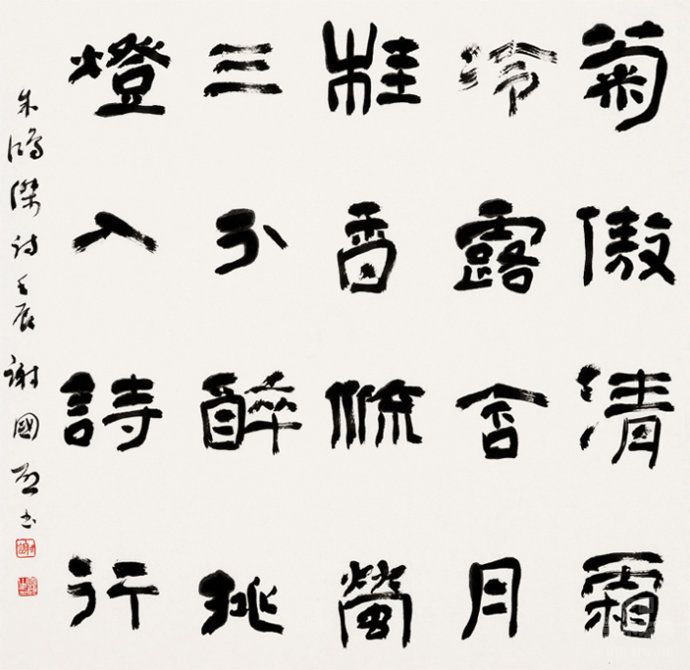 菊傲清霜
冷露含月
桂香流螢
三分醉挑
燈入詩行
朱鴻傑詩壬辰謝國书